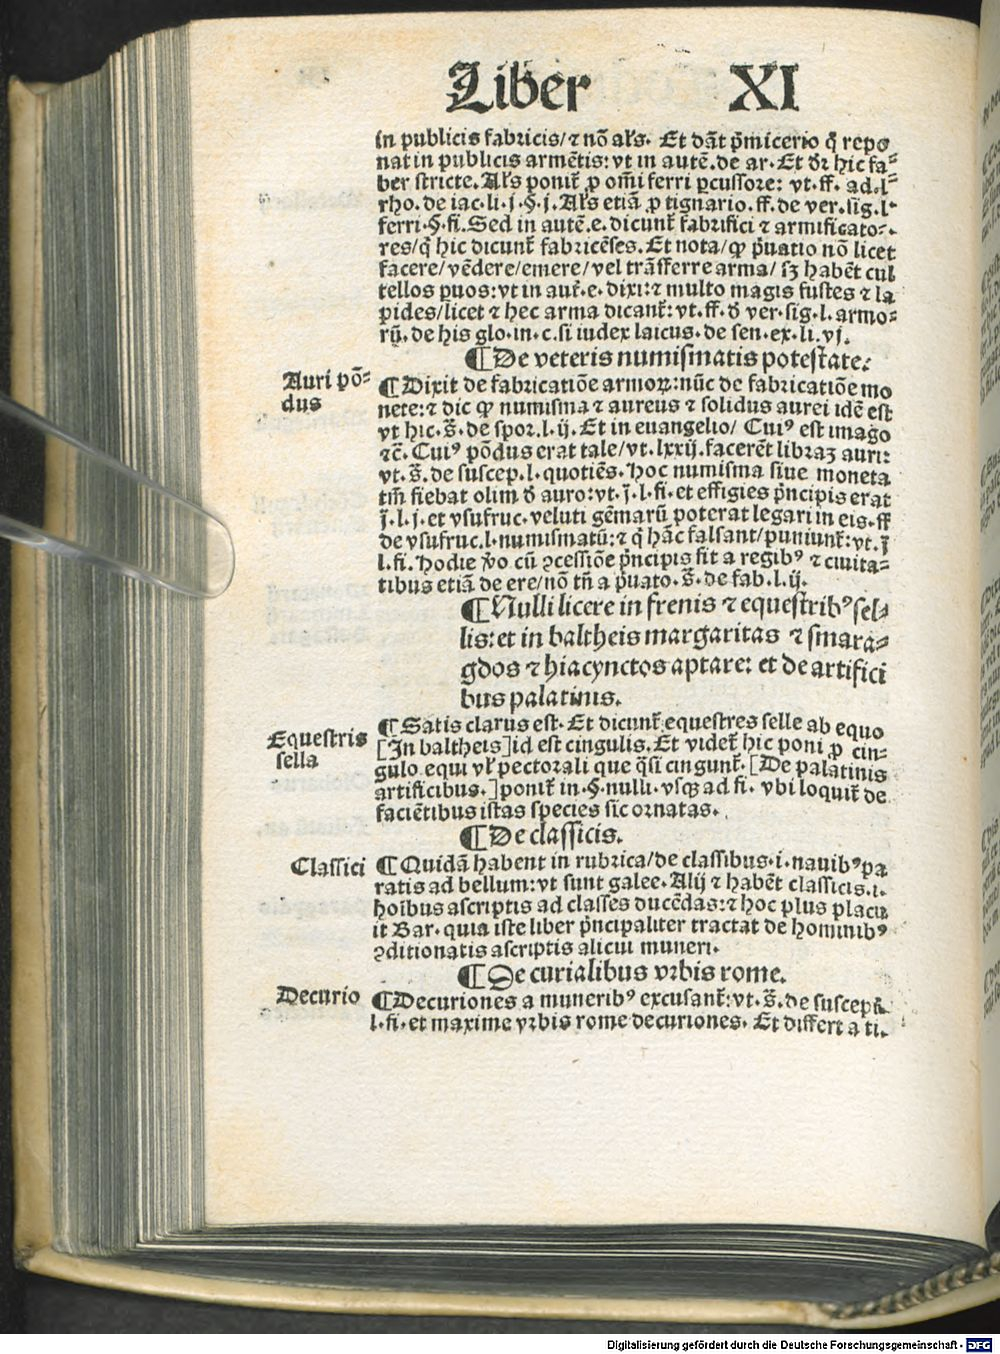 Liber XI
in publicis fabricis/ ⁊ nõ al's. Et dãt p̃micerio q̃ repo
nat in publicis armẽtis: vt in autẽ. de ar. Et dr̃ hic fa⸗
ber stricte. Al's ponit̃ ꝓ om̃i ferri ꝑcussore: vt. ff. ad. l⸗
rho. de iac. li. j. §. j. Al's etiã ꝓ tignario. ff. de ver. sig. l.
ferri. §. fi. Sed in autẽ. e. dicunt̃ fabrifici ⁊ armificato⸗
res/ q̃ hic dicunt̃ fabricẽses. Et nota/ ꝙ p̃uatio nõ licet
facere/ vẽdere/ emere/ vel trãsferre arma/ sꝫ habẽt cul
tellos ꝑuos: vt in aut̃. e. dixi: ⁊ multo magis fustes ⁊ la
pides/ licet ⁊ hec arma dicant̃: vt. ff. đ ver. sig. l. armo⸗
rũ. de his glo. in. c. si iudex laicus. de sen. ex. li. vj.
¶ De veteris numismatis potestate.
Auri põ⸗
dus
¶ Dixit de fabricatiõe armoꝝ: nũc de fabricatiõe mo
nete: ⁊ dic ꝙ numisma ⁊ aureus ⁊ solidus aurei idẽ est
vt hic. s̃. de spor. l. ij. Et in euangelio/ Cuiꝰ est imago
⁊c̃. Cuiꝰ põdus erat tale/ vt. lxxij. facerẽt libraꝫ auri:
vt. s̃. de suscep. l. quotiẽs. Hoc numisma siue moneta
tm̃ fiebat olim đ auro: vt. j̃. l. fi. et effigies p̃ncipis erat
j̃. l. j. et vsufruc. veluti gẽmarũ poterat legari in eis. ff
de vsufruc. l. numismatũ: ⁊ q̃ hãc falsant/ puniunt̃: vt. j̃
l. fi. Hodie ṽo cũ ꝯcessiõe p̃ncipis fit a regibꝰ ⁊ ciuita⸗
tibus etiã de ere/ nõ tñ a p̃uato. s̃. de fab. l. ij.
¶ Nulli licere in frenis ⁊ equestribꝰ sel⸗
lis: et in baltheis margaritas ⁊ smara⸗
gdos ⁊ hiacynctos aptare: et de artifici
bus palatinis.
Equestris
sella
¶ Satis clarus est. Et dicunt̃ equestres selle ab equo
[In baltheis] id est cingulis. Et videt̃ hic poni ꝓ cin⸗
gulo equi vl' pectorali que q̃si cingunt̃. [De palatinis
artificibus.] ponit̃ in. §. nulli. vsqꝫ ad fi. vbi loquit̃ de
faciẽtibus istas species sic ornatas.
¶ De classicis.
Classici
¶ Quidã habent in rubrica/ de classibus. i. nauibꝰ pa
ratis ad bellum: vt sunt galee. Alij ⁊ habẽt classicis. i.
hoĩbus ascriptis ad classes ducẽdas: ⁊ hoc plus placu
it Bar. quia iste liber p̃ncipaliter tractat de hominibꝰ
ꝯditionatis ascriptis alicui muneri.
¶ De curialibus vrbis rome.
Decurio
¶ Decuriones a muneribꝰ excusant̃: vt. s̃. de suscept̃.
l. fi. et maxime vrbis rome decuriones. Et differt a ti.
Digitalisierung gefördert durch die Deutsche Forschungsgemeinschaft - DFG